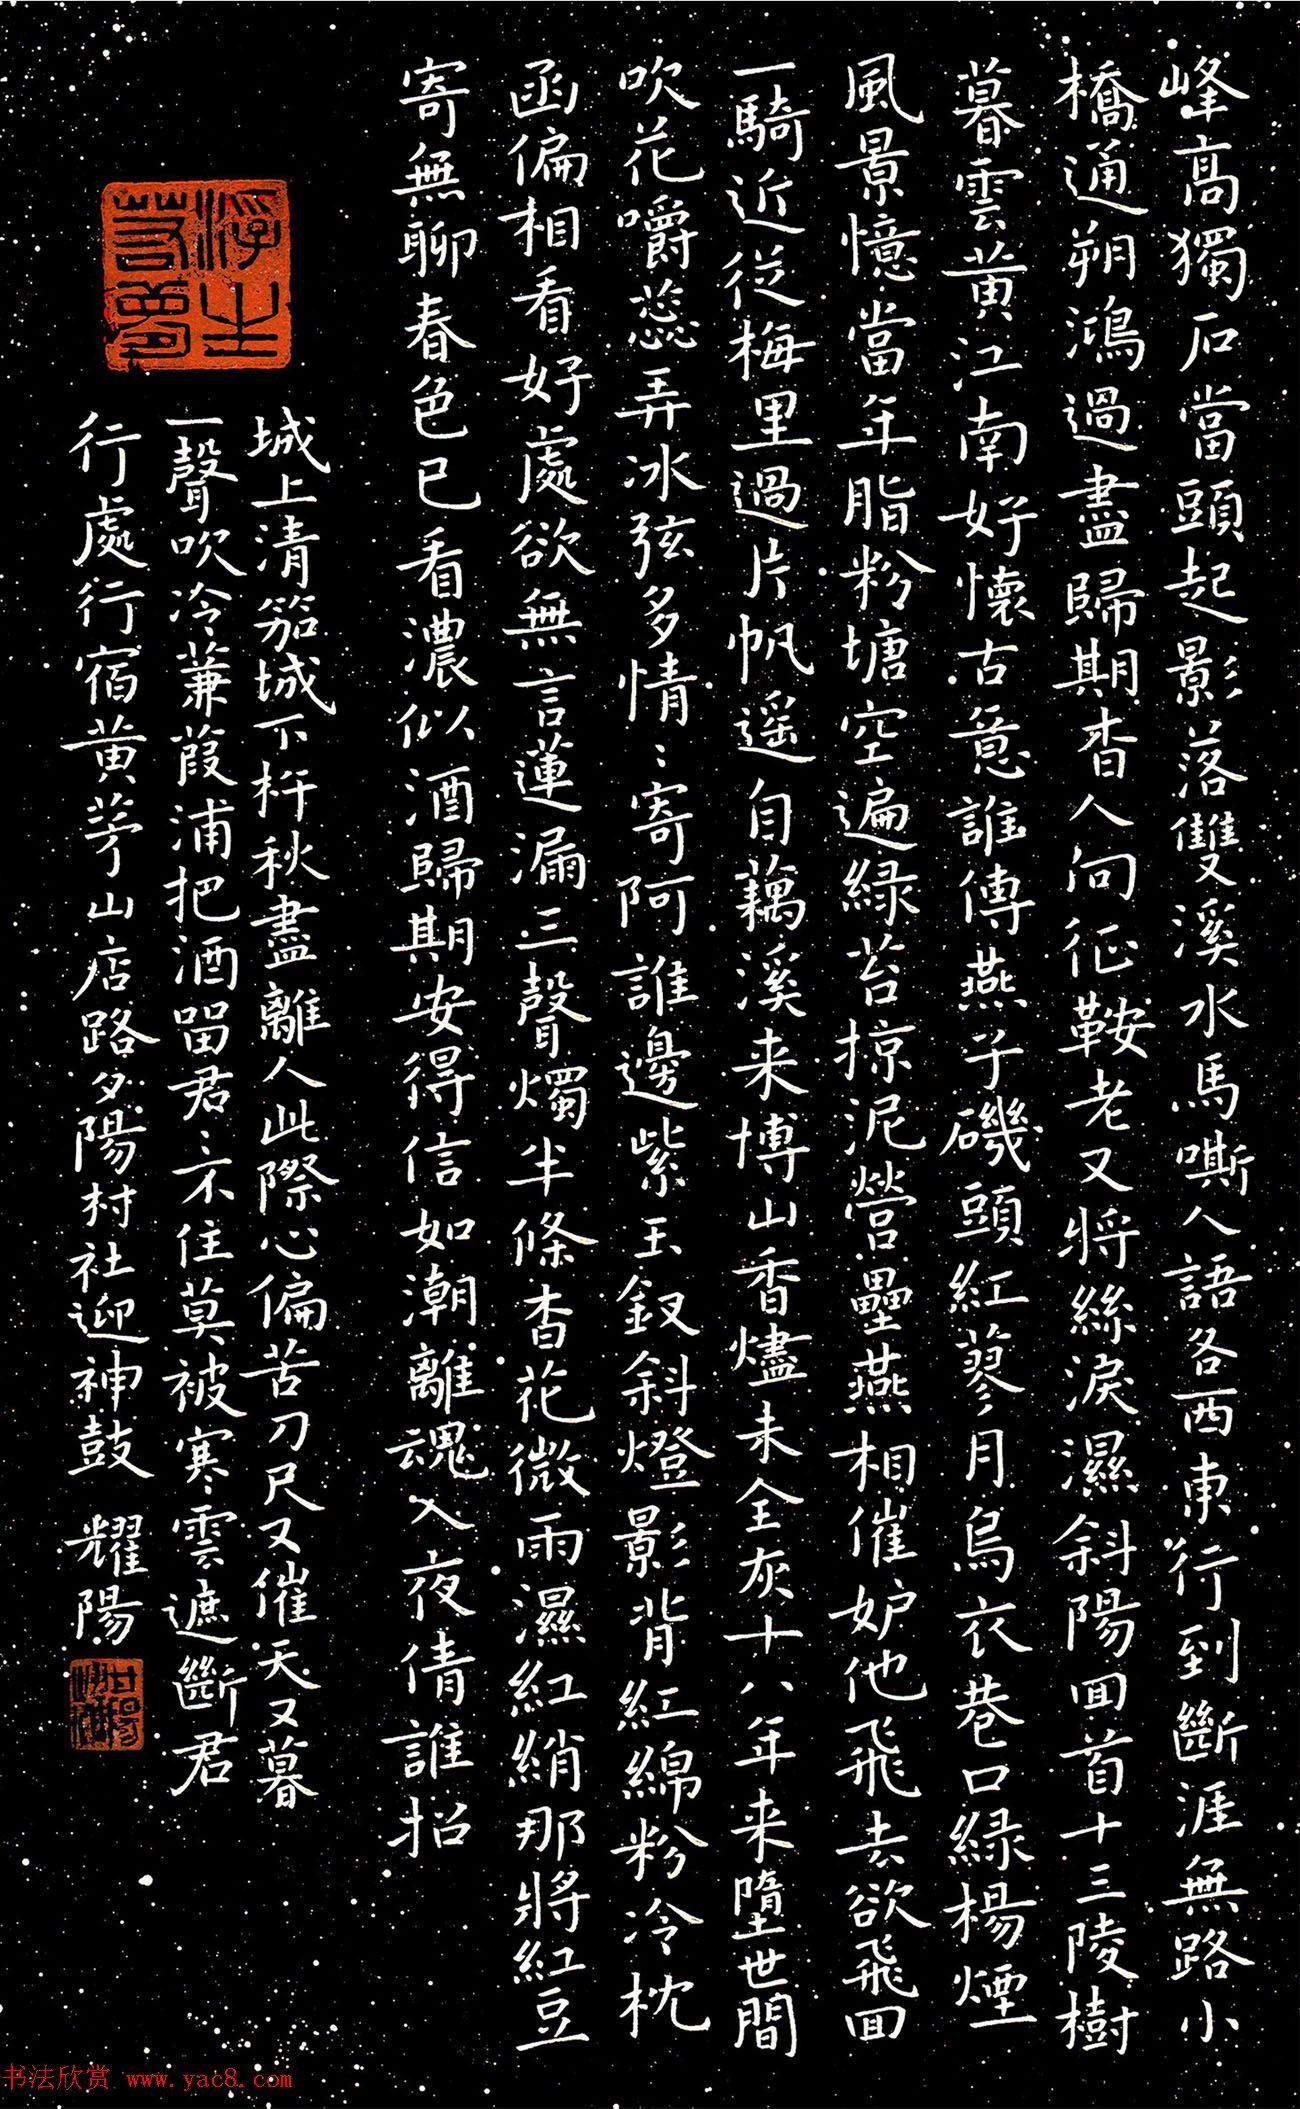 峰高獨石當頭起影落雙溪水馬嘶人語各西東行到斷涯無路小
橋通朔鴻過盡歸期杳人向征鞍老又將絲淚濕斜陽回首十三陵樹
暮雲黃江南好懷古意誰傳燕子磯頭紅蓼月烏衣巷口綠楊煙
風景憶當年脂粉塘空遍綠苔掠泥營壘燕相催妒他飛去欲飛回
一騎近從梅里過片帆遥自藕溪来博山香燼未全灰十八年来墮世間
吹花嚼蕊弄冰弦多情〻寄阿誰邊紫玉釵斜燈影背紅綿粉冷枕
函偏相看好處欲無言蓮漏三聲燭半條杏花微雨濕紅綃那將紅豆
寄無聊春色已看濃似酒歸期安得信如潮離魂入夜倩誰招
浮生若夢
城上清笳城下杵秋盡離人此際心偏苦刀尺又催天又暮
一聲吹冷蒹葭浦把酒留君〻不住莫被寒雲遮斷君
行處行宿黃茅山店路夕陽村社迎神鼓 耀陽
书法欣赏 www.yac8.com